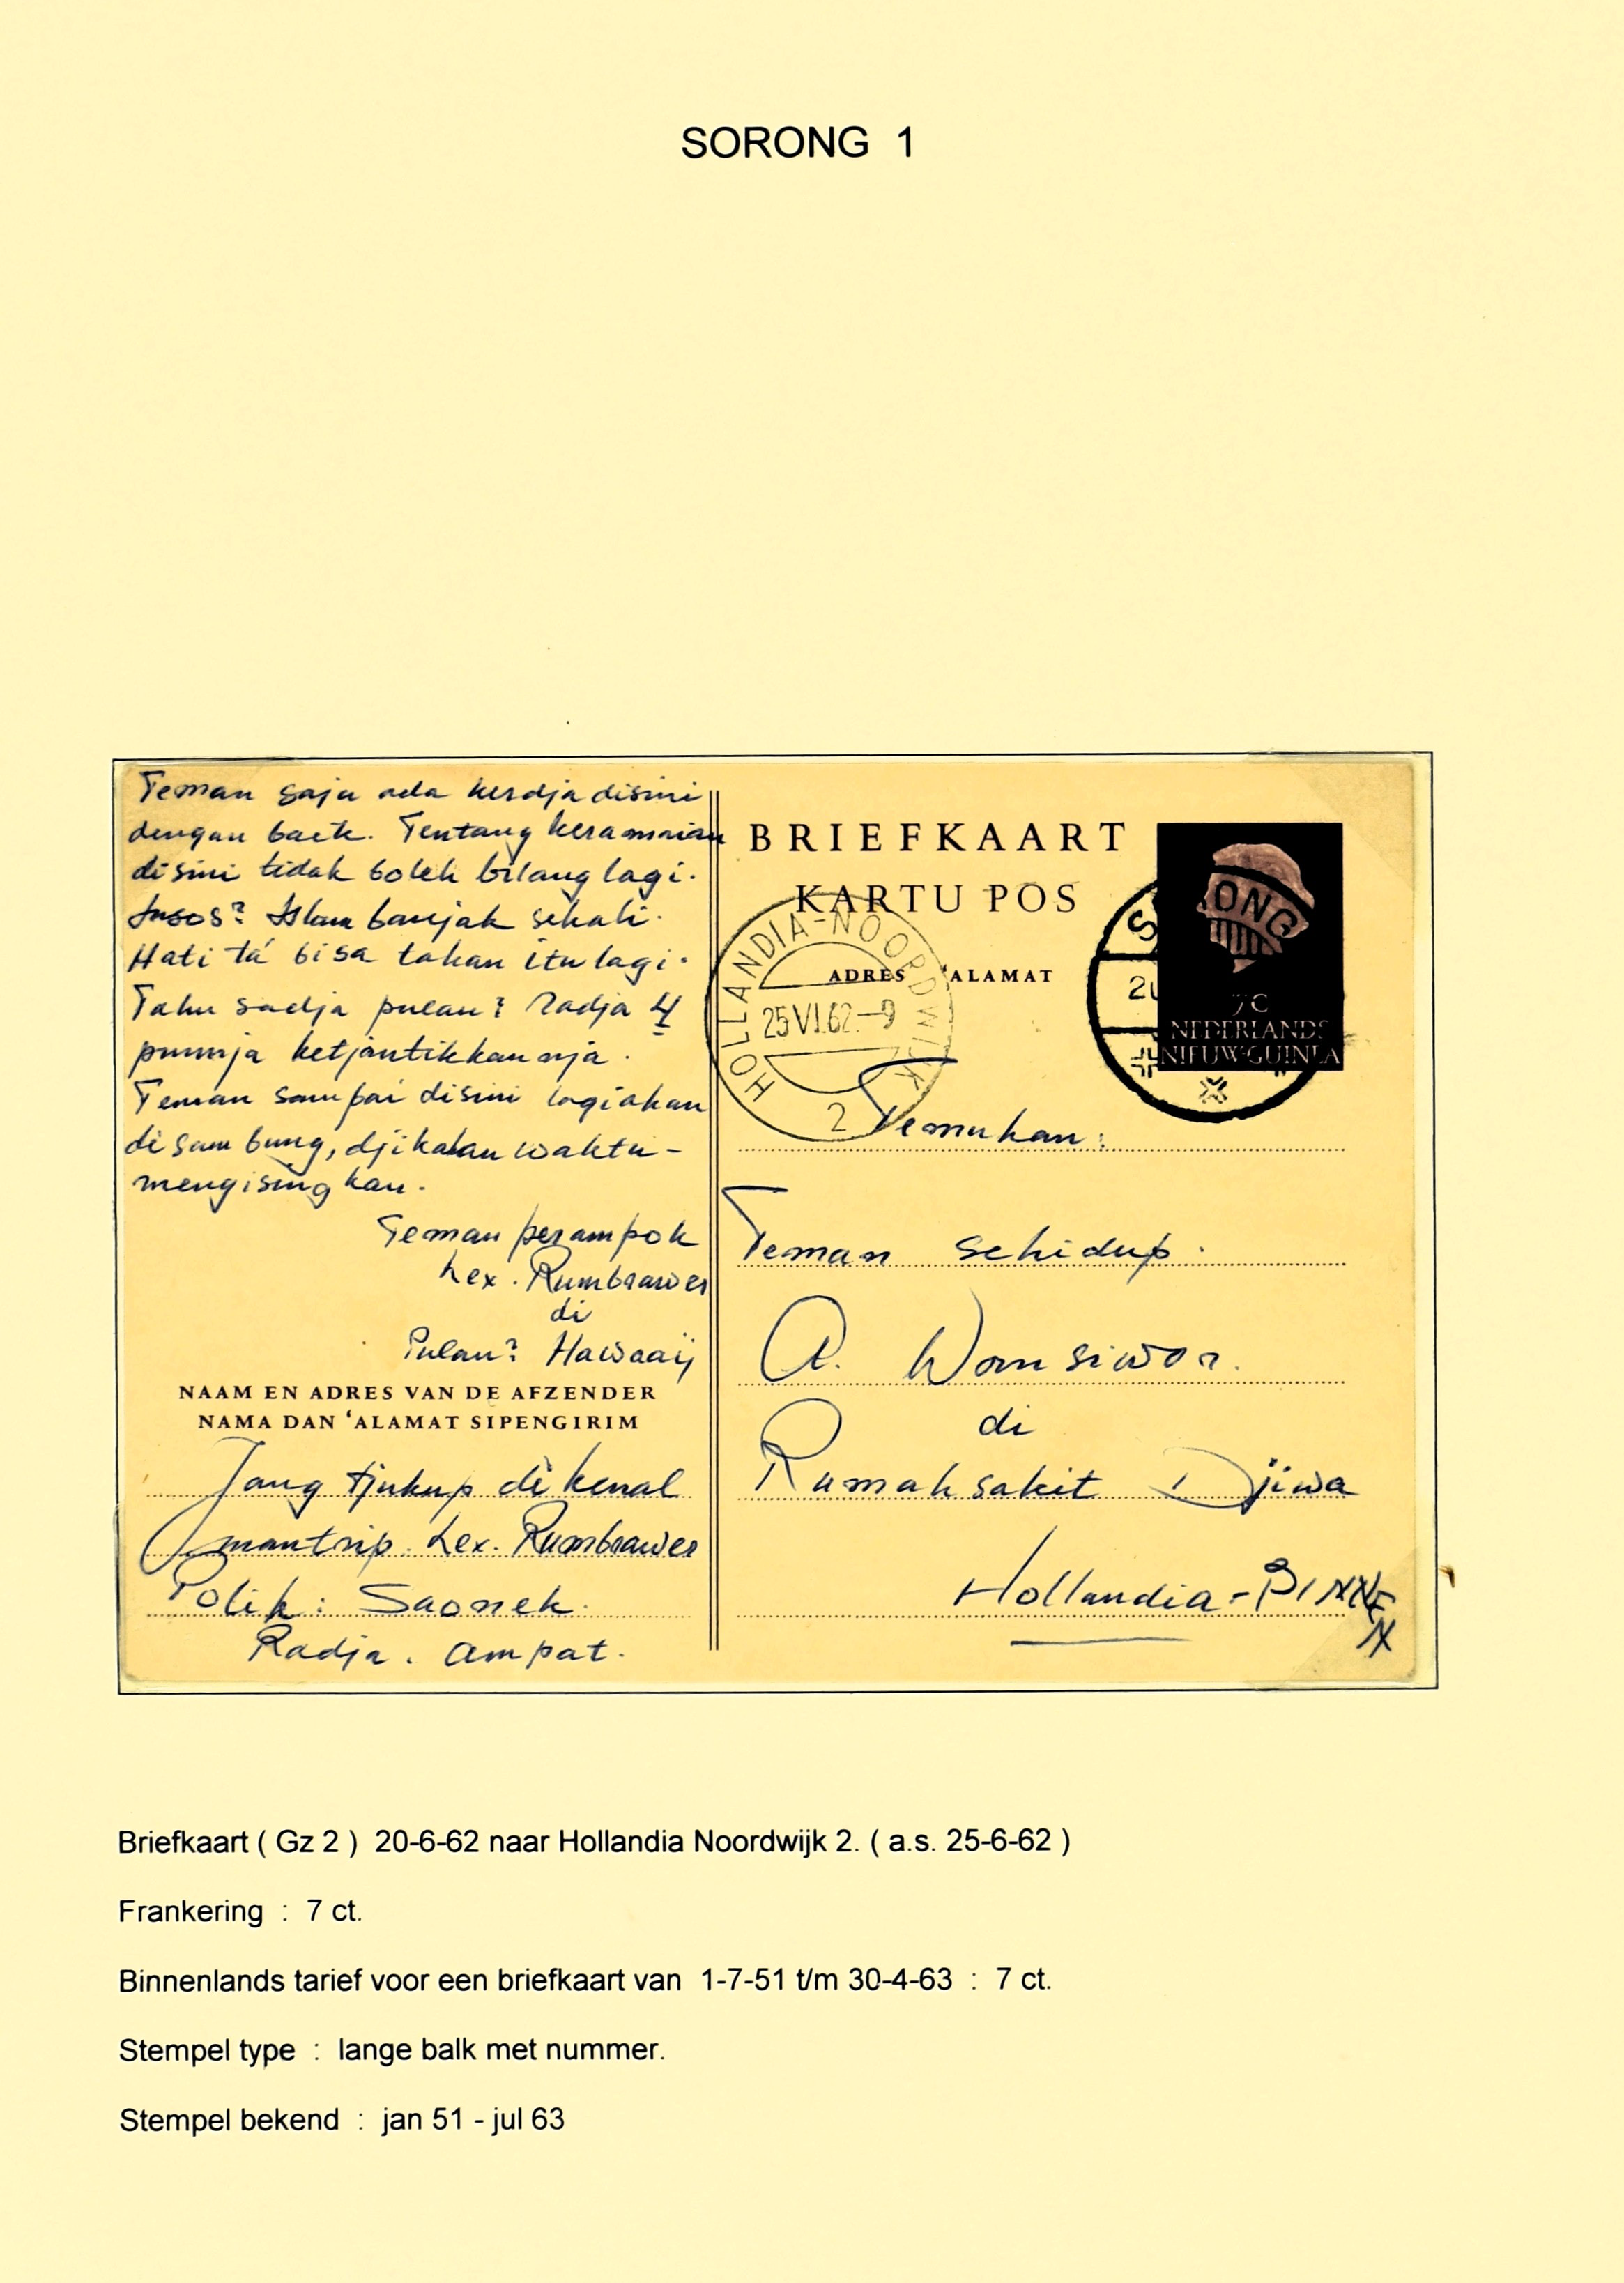 SORONG 1
Teman saja ada kerdja disini
dengan baik. Tentang keramaian
disini tidak boleh bilang lagi.
Islam banjak sekali.
Hati ta' bisa tahan itu lagi.
Tahu sadja pulau² Radja 4
punnja ketjantikkannja.
Teman sampai disini lagi akan
disambung, djikalau waktu-
mengisingkan.
Teman perampok
Lex. Rumbrawer
di
Pulau² Hawaaij
NAAM EN ADRES VAN DE AFZENDER
NAMA DAN 'ALAMAT SIPENGIRIM
Jang tjukup dikenal
mantrip. Lex. Rumbrawer
Polik: Saonek.
Radja. Ampat.
BRIEFKAART
KARTU POS
ADRES 'ALAMAT
HOLLANDIA-NOORDWIJK
25 VI.62.-9
2
SORONG
20
7C
NEDERLANDS
NIEUW-GUINEA
Temukan:
Teman sehidup.
A. Womsiwor.
di
Rumah sakit Djiwa
Hollandia-BINNEN
Briefkaart ( Gz 2 ) 20-6-62 naar Hollandia Noordwijk 2. ( a.s. 25-6-62 )
Frankering : 7 ct.
Binnenlands tarief voor een briefkaart van 1-7-51 t/m 30-4-63 : 7 ct.
Stempel type : lange balk met nummer.
Stempel bekend : jan 51 - jul 63